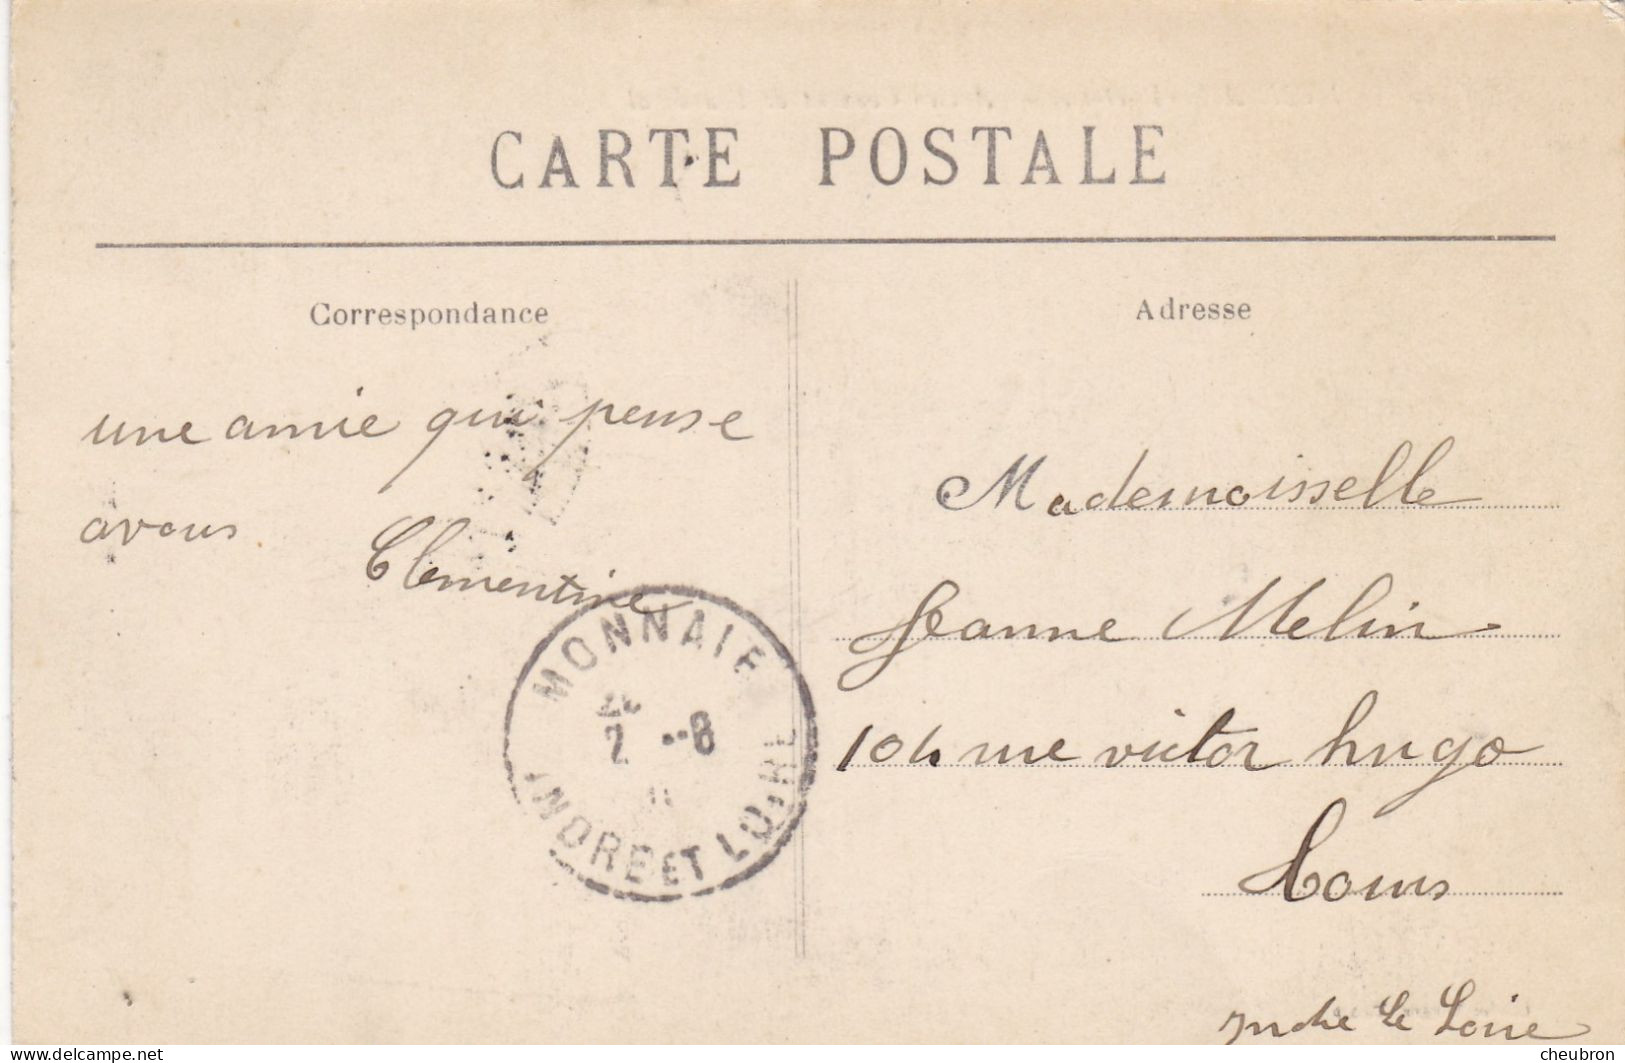 CARTE POSTALE
Correspondance
Adresse
une amie qui pense
avous
Clementine
MONNAIE
2 -8
INDRE ET LOIRE
Mademoisselle
Jeanne Melin
104 rue victor hugo
Tours
Indre Le Loire
delcampe.net
cheubron